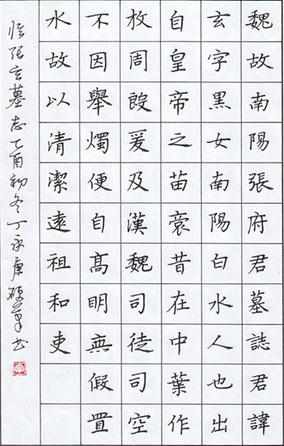 魏故南陽張府君墓誌君諱
玄字黑女南陽白水人也出
自皇帝之苗裔昔在中葉作
枚周殷爰及漢魏司徒司空
不因舉燭便自髙明無假置
水故以清潔遠祖和吏
临张玄墓志乙酉初冬丁永康硬笔书